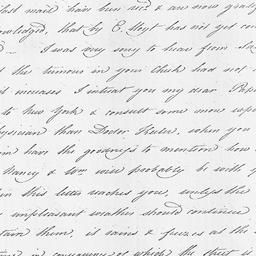 last mail has been rec'd & am now greatly
knowledged, that by C. Hoyt has not yet com
I was very sorry to hear from
the tumour in your cheek had not
increased I intreat you my dear Papa
to New York & consult some more expe
physician than Doctor when you
him have the goodness to mention how
Nancy & Wm will probably be with y
when this letter reaches you, unless the
unpleasant weather should continue
them, it rains & freezes as the
in consequence of which the street is